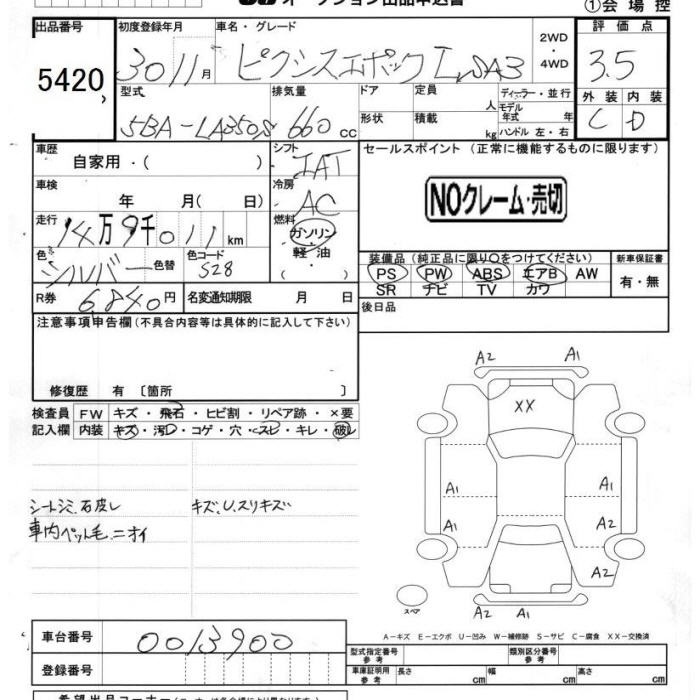 オークション出品申込書
①会場控
出品番号 初度登録年月 車名・グレード 2WD・4WD 評価点
5420 30 11月 ピクシスエポック L SA3 3.5
型式 排気量 ドア 定員 人 ディーラー・並行 外装 内装
5BA-LA350S 660cc 形状 積載 kg モデル年式 年式 ハンドル 左・右 C D
車歴 自家用・( ) シフト IAT セールスポイント (正常に機能するものに限ります)
車検 年 月(日) 冷房 AC NOクレーム・売切
走行 14万9千011km 燃料 ガソリン・軽油・( )
色 シルバー 色替 色コード S28
装備品(純正品に限り○をつけてください) 新車保証書
PS PW ABS エアB AW 有・無
SR ナビ TV カワ
R券 6,840円 名変通知期限 月 日 後日品
注意事項申告欄(不具合内容等は具体的に記入して下さい)
修復歴 有〔箇所 〕
検査員 FW キズ・飛石・ヒビ割・リペア跡・×要
記入欄 内装 キズ・汚レ・コゲ・穴・スレ・キレ・破レ
シートシミ.石皮レ キズ.U.スリキズ
車内ペット毛.ニオイ
A2 A1
XX
A1 A1
A1 A2
A2
スペア
A2 A1
A-キズ E-エクボ U-凹み W-補修跡 S-サビ C-腐食 XX-交換済
車台番号 0013900
型式指定番号 参考 類別区分番号 参考
登録番号 車庫証明用 参考 長さ cm 幅 cm 高さ cm
希望出品コーナー